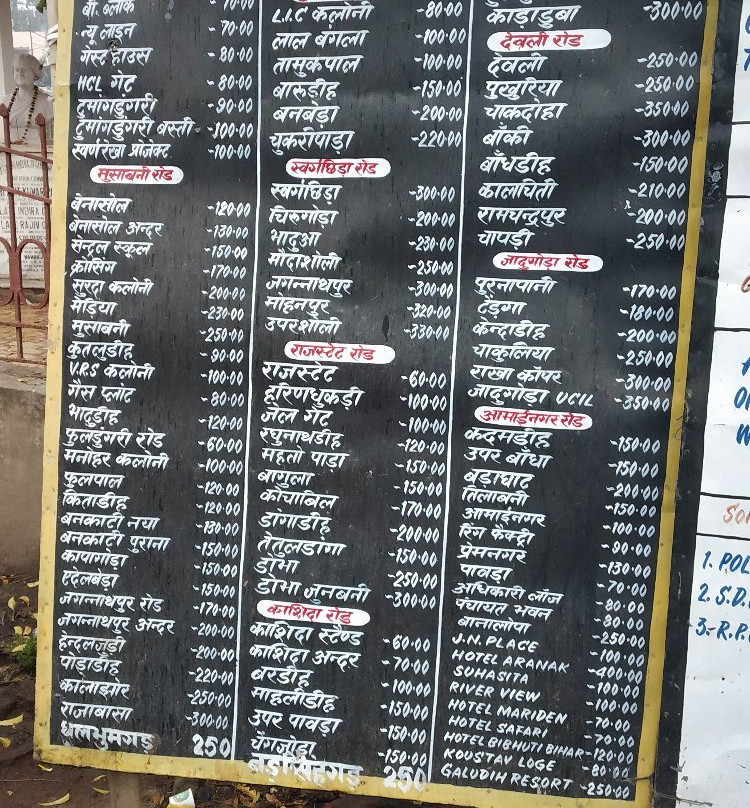 बी. ब्लॉक -70.00
न्यू लाइन -70.00
गेस्ट हाउस -80.00
HCL गेट -80.00
टुमांगडुंगरी -90.00
टुमांगडुंगरी बस्ती -100.00
स्वर्णरेखा प्रोजेक्ट -100.00
मुसाबनी रोड
बेनासोल -120.00
बेनासोल अन्दर -130.00
सेन्ट्रल स्कूल -150.00
क्रोसिंग -170.00
सुरदा कलोनी -200.00
मेड़िया -230.00
मुसाबनी -250.00
कुतलुडीह -90.00
V.R.S कलोनी -100.00
गैस प्लांट -80.00
भादुडीह -120.00
फुलडुंगरी रोड -60.00
मनोहर कलोनी -100.00
फुलपाल -120.00
किताडीह -120.00
बनकाटी नया -130.00
बनकाटी पुराना -150.00
कापागोड़ा -150.00
एदेलबेड़ा -150.00
जगन्नाथपुर रोड -170.00
जगन्नाथपुर अन्दर -200.00
हेन्दलजुड़ी -200.00
पाड़ाडीह -220.00
कालाझोर -250.00
राजाबासा -300.00
धालभुमगड़ 250
L.I.C कलोनी -80.00
लाल बंगला -100.00
तामुकपाल -100.00
बारूडीह -150.00
बनबेड़ा -200.00
चुकरीपाड़ा -220.00
स्वर्गछिड़ा रोड
स्वर्गछिड़ा -300.00
चिरुगोड़ा -200.00
भादुआ -230.00
मोदाशोली -250.00
जगन्नाथपुर -300.00
मोहनपुर -320.00
उपरशोली -330.00
राजस्टेट रोड
राजस्टेट -60.00
हरिणधुकड़ी -100.00
जेल गेट -100.00
रघुनाथडीह -120.00
महतो पाड़ा -150.00
बागुला -150.00
कोचाबिल -170.00
डांगाडीह -200.00
तेतुलडांगा -150.00
डोभा -250.00
डोभा जुनबनी -300.00
काशिदा रोड
काशिदा स्टैण्ड -60.00
काशिदा अन्दर -70.00
बरडीह -100.00
माहलीडीह -150.00
उपर पावड़ा -150.00
चेंगजोड़ा -150.00
नड़सिंहगड़ 250
काड़ाडुबा -300.00
देवली रोड
देवली -250.00
पुखुरिया -250.00
चाकदोहा -350.00
बाँकी -300.00
बाँधडीह -150.00
कालचिती -210.00
रामचन्द्रपुर -200.00
चापड़ी -250.00
जादुगोड़ा रोड
पुरनापानी -170.00
टैंड़गा -180.00
केन्दाडीह -200.00
चाकुलिया -250.00
राखा कॉपर -300.00
जादुगोड़ा UCIL -350.00
आमाईनगर रोड
कदमडीह -150.00
उपर बाँधा -150.00
बड़ाघाट -200.00
तिलाबनी -150.00
आमाईनगर -100.00
रिंग फैक्ट्री -90.00
प्रेमनगर -130.00
पावड़ा -70.00
अधिकारी लॉज -80.00
पंचायत भवन -80.00
बानालोपा -250.00
J.N. PLACE -100.00
HOTEL ARANAK -400.00
SUHASITA -100.00
RIVER VIEW -100.00
HOTEL MARIDEN -70.00
HOTEL SAFARI -70.00
HOTEL BIBHUTI BIHAR -120.00
KOUSTAV LOGE -80.00
GALUDIH RESORT -250.00
1. POL
2. S.D.
3.-R.P.